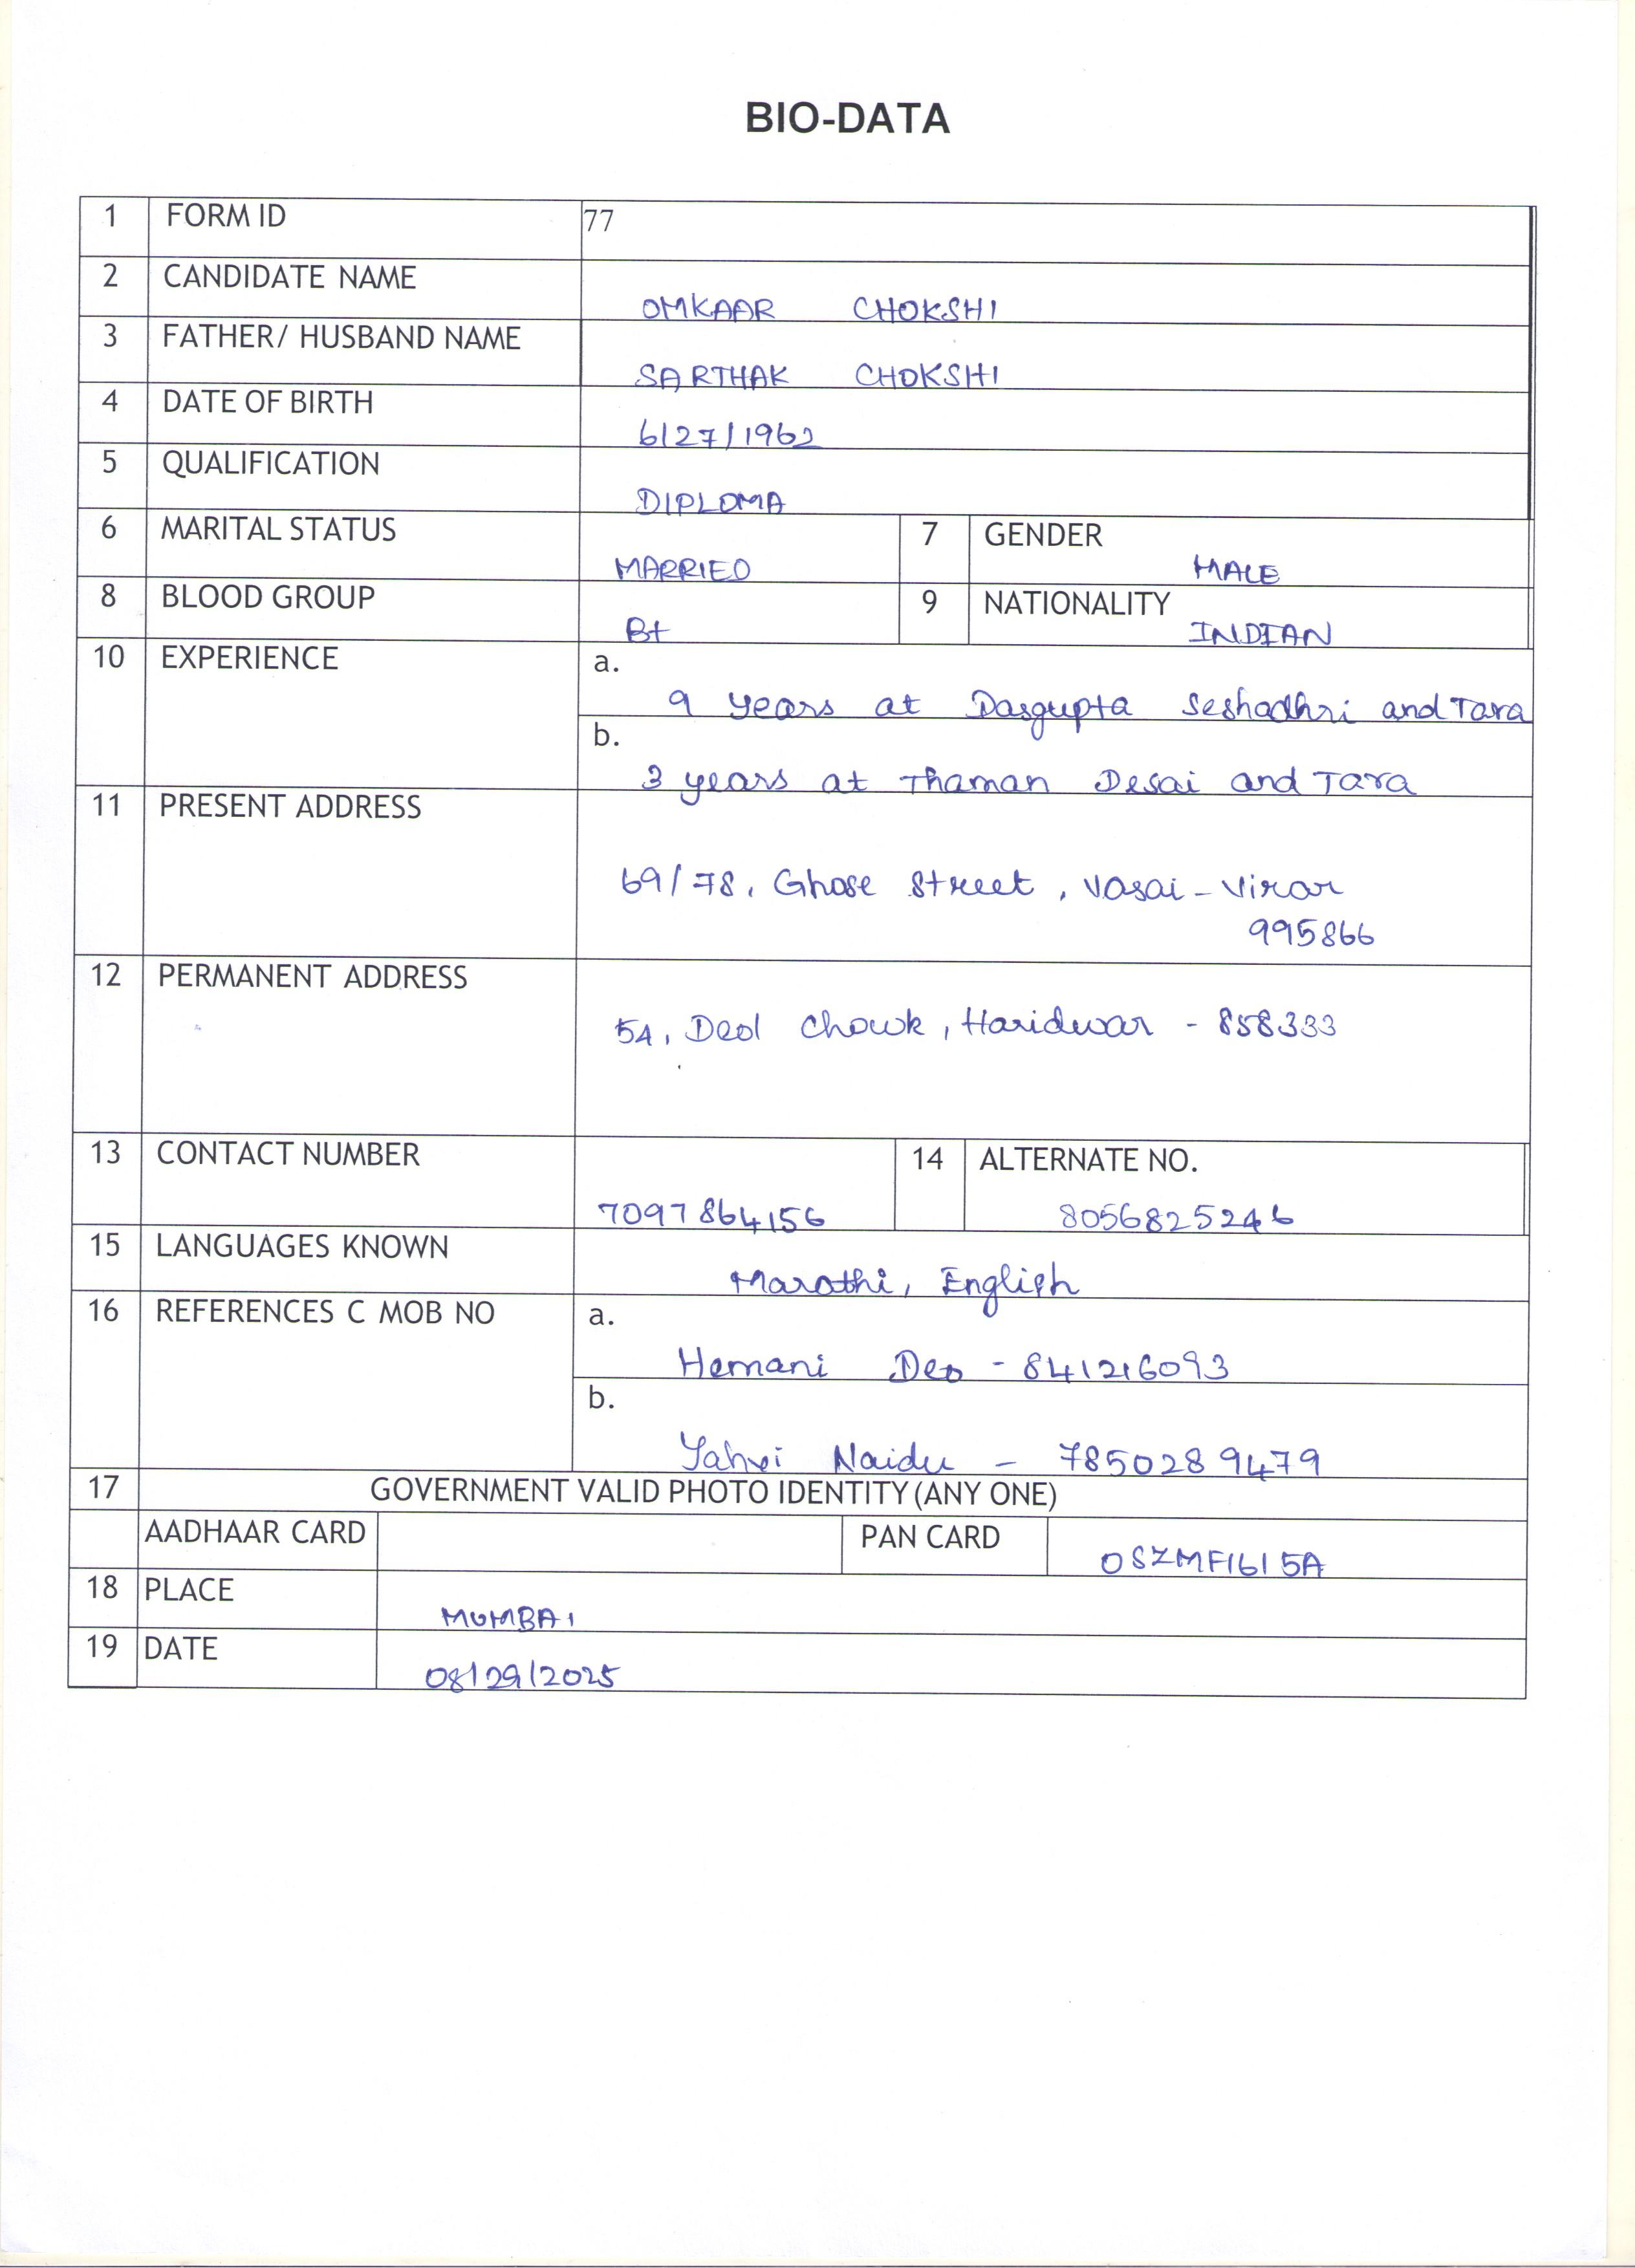 BIO-DATA
1 FORM ID 77
2 CANDIDATE NAME OMKAAR CHOKSHI
3 FATHER/ HUSBAND NAME SARTHAK CHOKSHI
4 DATE OF BIRTH 6/27/1962
5 QUALIFICATION DIPLOMA
6 MARITAL STATUS MARRIED 7 GENDER MALE
8 BLOOD GROUP B+ 9 NATIONALITY INDIAN
10 EXPERIENCE a. 9 years at Dasgupta Seshadhri and Tara
b. 3 years at Thaman Desai and Tara
11 PRESENT ADDRESS
69/78, Ghose Street, Vasai-Virar
995866
12 PERMANENT ADDRESS
54, Deol Chowk, Haridwar - 858333
13 CONTACT NUMBER 7097864156 14 ALTERNATE NO. 8056825246
15 LANGUAGES KNOWN Marathi, English
16 REFERENCES C MOB NO a. Hemani Deo - 841216093
b. Yahvi Naidu - 7850289479
17 GOVERNMENT VALID PHOTO IDENTITY (ANY ONE)
AADHAAR CARD PAN CARD OSZMF1615A
18 PLACE MUMBAI
19 DATE 08/29/2025